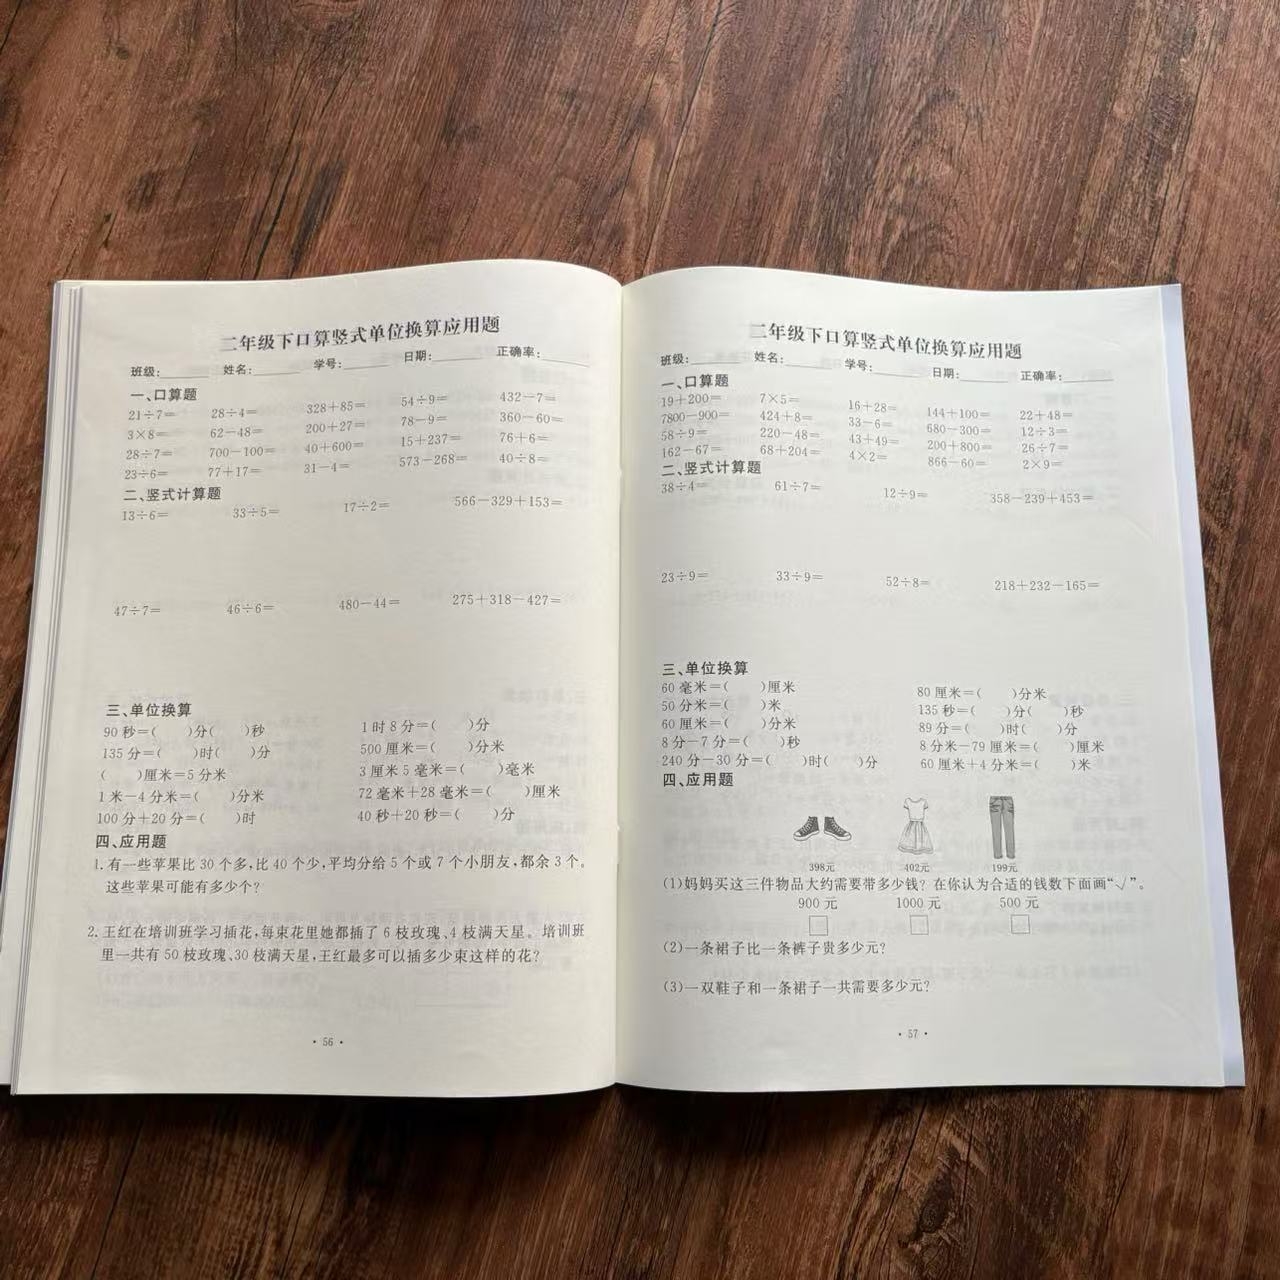 二年级下口算竖式单位换算应用题
班级: 姓名: 学号: 日期: 正确率:
一、口算题
21÷7= 28÷4= 328+85= 54÷9= 432−7=
3×8= 62−48= 200+27= 78−9= 360−60=
28÷7= 700−100= 40+600= 15+237= 76+6=
23÷6= 77+17= 31−4= 573−268= 40÷8=
二、竖式计算题
13÷6= 33÷5= 17÷2= 566−329+153=
47÷7= 46÷6= 480−44= 275+318−427=
三、单位换算
90秒=( )分( )秒 1时8分=( )分
135分=( )时( )分 500厘米=( )分米
( )厘米=5分米 3厘米5毫米=( )毫米
1米−4分米=( )分米 72毫米+28毫米=( )厘米
100分+20分=( )时 40秒+20秒=( )分
四、应用题
1.有一些苹果比30个多,比40个少,平均分给5个或7个小朋友,都余3个。
这些苹果可能有多少个?
2.王红在培训班学习插花,每束花里她都插了6枝玫瑰、4枝满天星。培训班
里一共有50枝玫瑰、30枝满天星,王红最多可以插多少束这样的花?
·56·
二年级下口算竖式单位换算应用题
班级: 姓名: 学号: 日期: 正确率:
一、口算题
19+200= 7×5= 16+28= 144+100= 22+48=
7800−900= 424+8= 33−6= 680−300= 12÷3=
58÷9= 220−48= 43+49= 200+800= 26÷7=
162−67= 68+204= 4×2= 866−60= 2×9=
二、竖式计算题
38÷4= 61÷7= 12÷9= 358−239+453=
23÷9= 33÷9= 52÷8= 218+232−165=
三、单位换算
60毫米=( )厘米 80厘米=( )分米
50分米=( )米 135秒=( )分( )秒
60厘米=( )分米 89分=( )时( )分
8分−7分=( )秒 8分米−79厘米=( )厘米
240分−30分=( )时( )分 60厘米+4分米=( )米
四、应用题
398元 402元 199元
(1)妈妈买这三件物品大约需要带多少钱? 在你认为合适的钱数下面画“√”。
900元 1000元 500元
(2)一条裙子比一条裤子贵多少元?
(3)一双鞋子和一条裙子一共需要多少元?
·57·